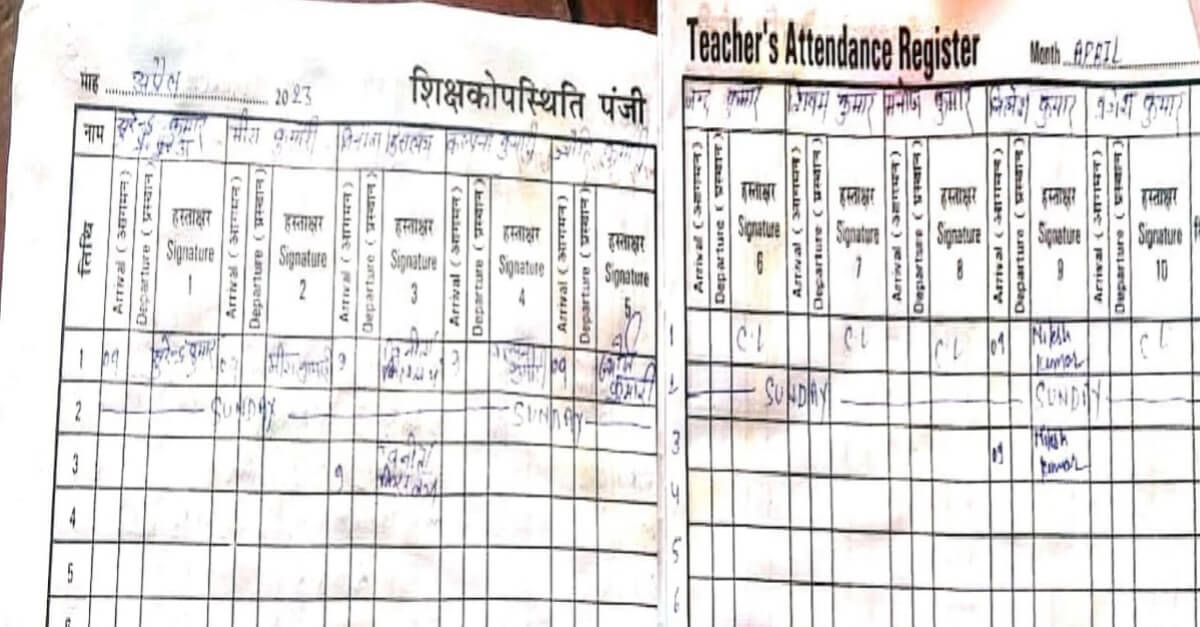 माह अप्रैल 2023 शिक्षकोपस्थिति पंजी
नाम सुरेन्द्र कुमार मीरा कुमारी कल्पना कुमारी ज्योति कुमारी
प्र.
तिथि Arrival (आगमन) Departure (प्रस्थान) हस्ताक्षर Signature 1 Arrival (आगमन) Departure (प्रस्थान) हस्ताक्षर Signature 2 Arrival (आगमन) Departure (प्रस्थान) हस्ताक्षर Signature 3 Arrival (आगमन) Departure (प्रस्थान) हस्ताक्षर Signature 4 Arrival (आगमन) Departure (प्रस्थान) हस्ताक्षर Signature 5
1 09 सुरेन्द्र कुमार 09 मीरा कुमारी 9 9 कुमारी 09 ज्योति कुमारी
2 SUNDAY SUNDAY
3 9
4
5
6
Teacher's Attendance Register Month APRIL
कुमार शिवम कुमार मनोज कुमार निकेश कुमार ब्रजेश कुमार
Arrival (आगमन) Departure (प्रस्थान) हस्ताक्षर Signature 6 Arrival (आगमन) Departure (प्रस्थान) हस्ताक्षर Signature 7 Arrival (आगमन) Departure (प्रस्थान) हस्ताक्षर Signature 8 Arrival (आगमन) Departure (प्रस्थान) हस्ताक्षर Signature 9 Arrival (आगमन) Departure (प्रस्थान) हस्ताक्षर Signature 10
1 CL CL CL 09 Nikesh Kumar CL
SUNDAY SUNDAY
3 09 Nikesh Kumar
4
5
6